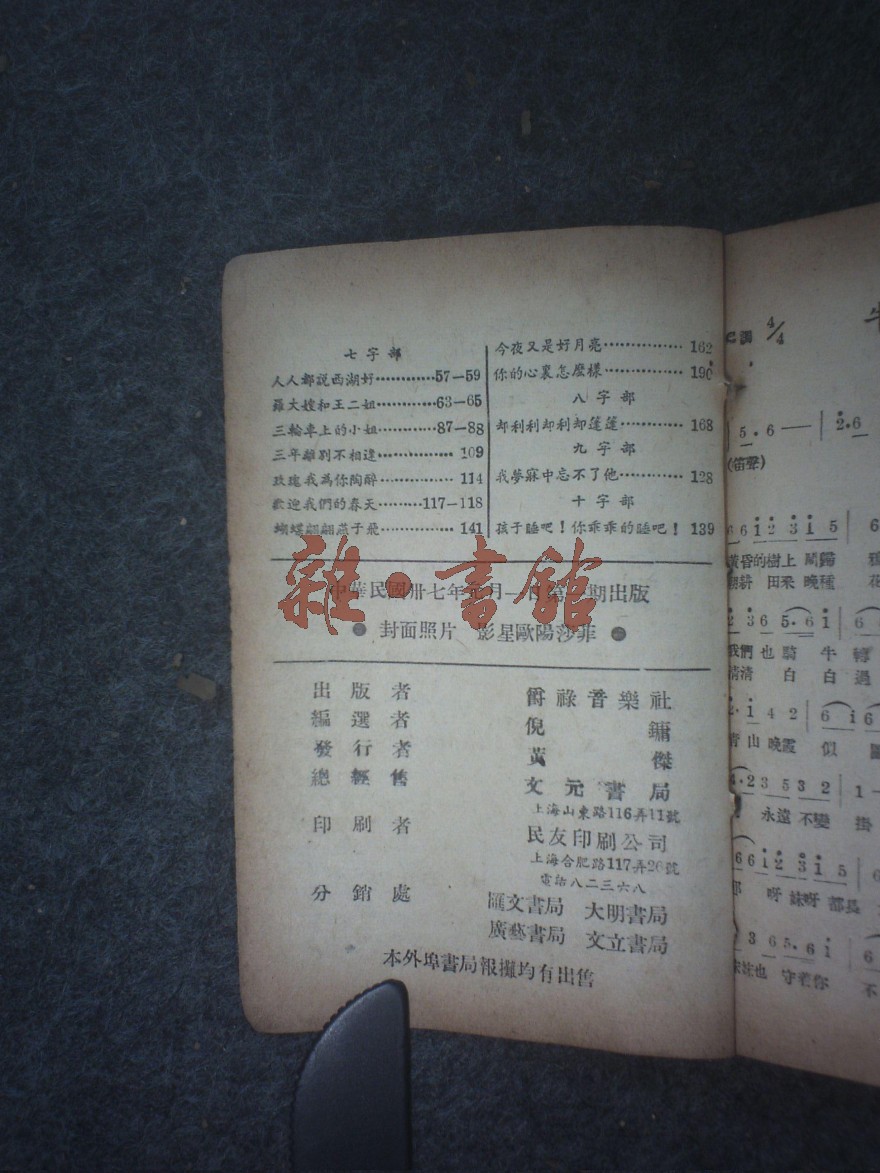 七字部
人人都說西湖好…………57—59
羅大嫂和王二姐…………63—65
三輪車上的小姐…………87—88
三年離別不相逢……………109
玫瑰我為你陶醉……………114
歡迎我們的春天………117—118
蝴蝶翩翩燕子飛……………141
今夜又是好月亮……………162
你的心裏怎麼樣……………190
八字部
却利利却利却蓬蓬…………168
九字部
我夢寐中忘不了他…………128
十字部
孩子睡吧！你乖乖的睡吧！139
中華民國卅七年 月一 期出版
封面照片 影星歐陽莎菲
出版者 爵祿音樂社
編選者 倪鏞
發行者 黃傑
總經售 文元書局
上海山東路116弄11號
印刷者 民友印刷公司
上海合肥路117弄26號
電話八二三六八
分銷處 匯文書局 大明書局
廣藝書局 文立書局
本外埠書局報攤均有出售
雜·書館
4/4
5·6— 2·6
(笛聲)
6 6 1 2 3 1 5 6
黃昏的樹上 鬧
耕 田來晚種 花
2 3 6 5·6 1 6
我們也騎 牛 轉
清清 白 白 過
2·1 4 2 6 i 6
青山晚霞 似
2 3 5 3 2 1—
永遠不變 掛
6 6 1 2 3 1 5 6
呀 妹呀 都
3 6 5·6 1 6
妹也 守着你 不